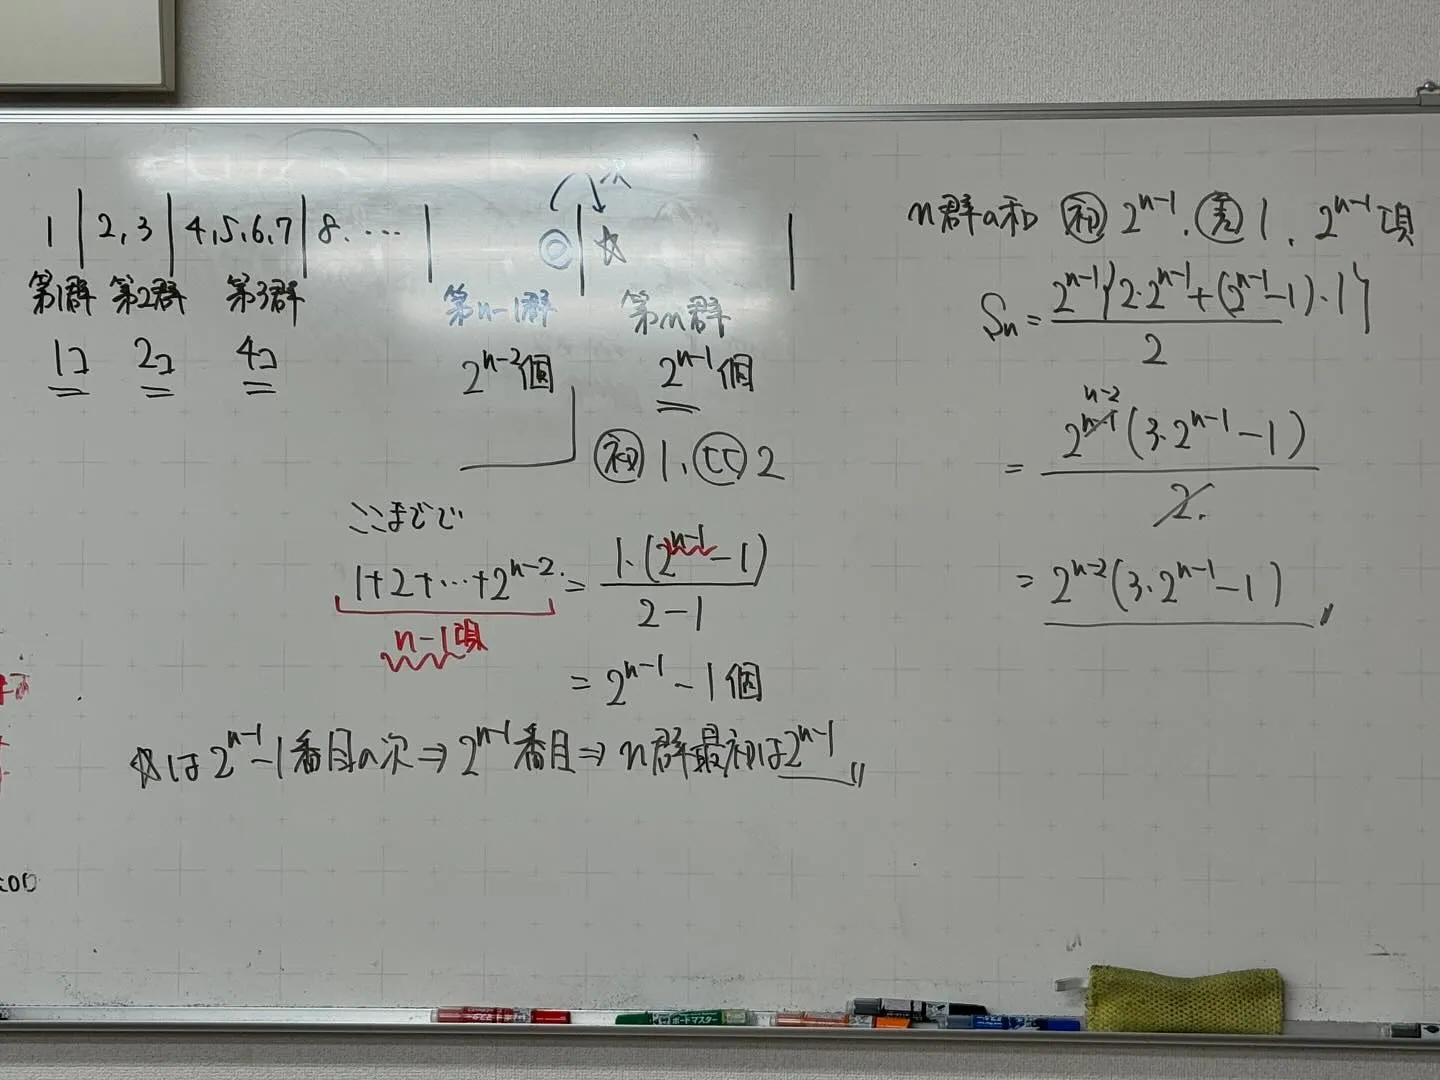 1 | 2, 3 | 4, 5, 6, 7 | 8. … | ◎ | ☆ |
次
第1群 第2群 第3群 第n-1群 第n群
1コ 2コ 4コ 2^{n-2}個 2^{n-1}個
初 1、比 2
ここまでで
1+2+…+2^{n-2} = \frac{1・(2^{n-1}-1)}{2-1}
n-1項
= 2^{n-1}-1個
☆は2^{n-1}-1番目の次⇒2^{n-1}番目⇒n群最初は2^{n-1}
n群の和 初 2^{n-1}. 差 1. 2^{n-1}項
S_n = \frac{2^{n-1}{2・2^{n-1}+(2^{n-1}-1)・1}}{2}
= \frac{2^{n-1}(3・2^{n-1}-1)}{2}
n-2
= 2^{n-2}(3・2^{n-1}-1)
ボードマスター